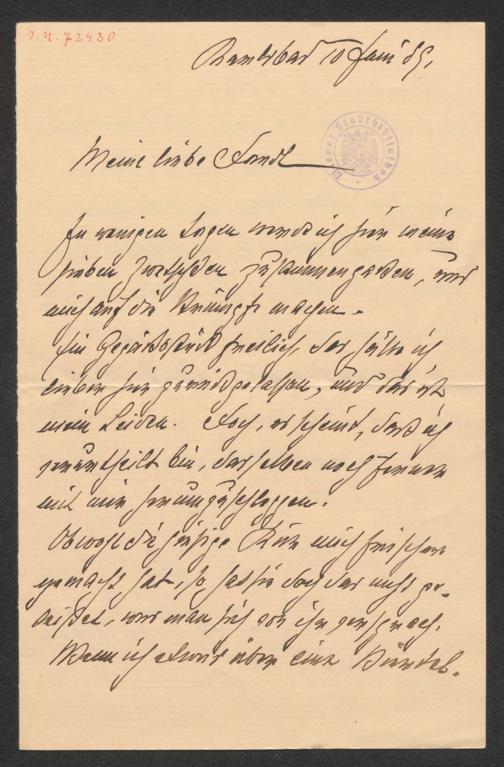 J. N. 72430
Karlsbad 10 Juni 89.
Wiener Stadtbibliothek
Meine liebe Fendl
In wenigen Tagen werde ich hier meine
sieben Zwetschken zusammenpacken, und
mich auf die Strümpfe machen.
Ein Gepäcksstück freilich, das hätte ich
lieber hier zurückgelassen, und das ist
mein Leiden. Doch, es scheint, daß ich
verurtheilt bin, dasselbe noch ferner
mit mir herumzuschleppen.
Obwohl die hiesige Kur mich frischer
gemacht hat, so hat sie doch das nicht ge-
leistet, was man sich von ihr versprach.
Wenn ich etwas über eine